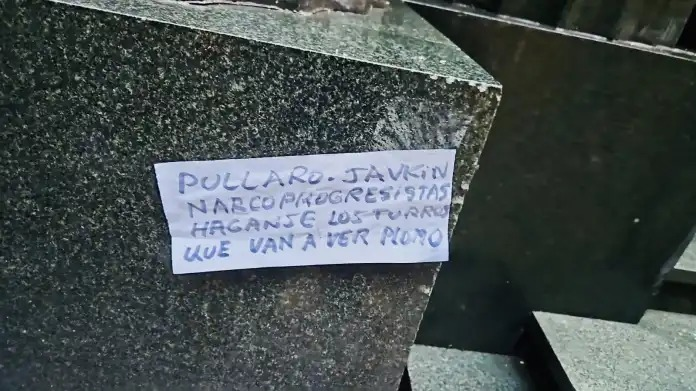 PULLARO. JAVKIN
NARCOPROGRESISTAS
HAGANSE LOS TURROS
QUE VAN A VER PLOMO